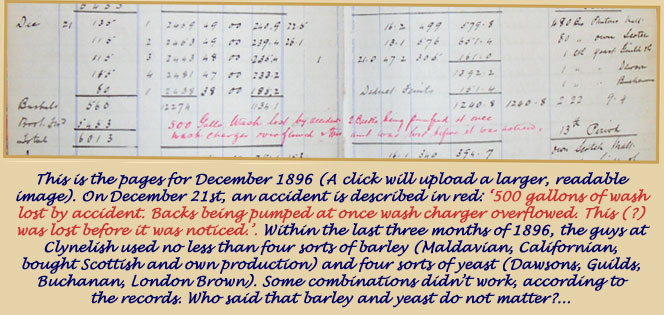 Dec 21 135 1 2409 49 00 240.9 22.5 16.2 499 579.8
115 2 2463 49 00 239.4 26.1 13.1 576
115 3 2483 48 00 1 21.0 47.2 306 161.0
165 4 2481 47 00 233.2 1392.2
80 1 2438 38 00 183.2 151.4
Bushels 560 12274 1240.8 1240.8 2.22 9.4
500 Galls Wash lost by 2 Backs being pumped at once
Total 6013 wash charger overflowed & was lost before it was noticed.
13th Period
own Scotch Malt
16.1 340 394.7
This is the pages for December 1896 (A click will upload a larger, readable
image). On December 21st, an accident is described in red: ‘500 gallons of wash
lost by accident. Backs being pumped at once wash charger overflowed. This (?)
was lost before it was noticed.’. Within the last three months of 1896, the guys at
Clynelish used no less than four sorts of barley (Maldavian, Californian,
bought Scottish and own production) and four sorts of yeast (Dawsons, Guilds,
Buchanan, London Brown). Some combinations didn’t work, according to
the records. Who said that barley and yeast do not matter?...